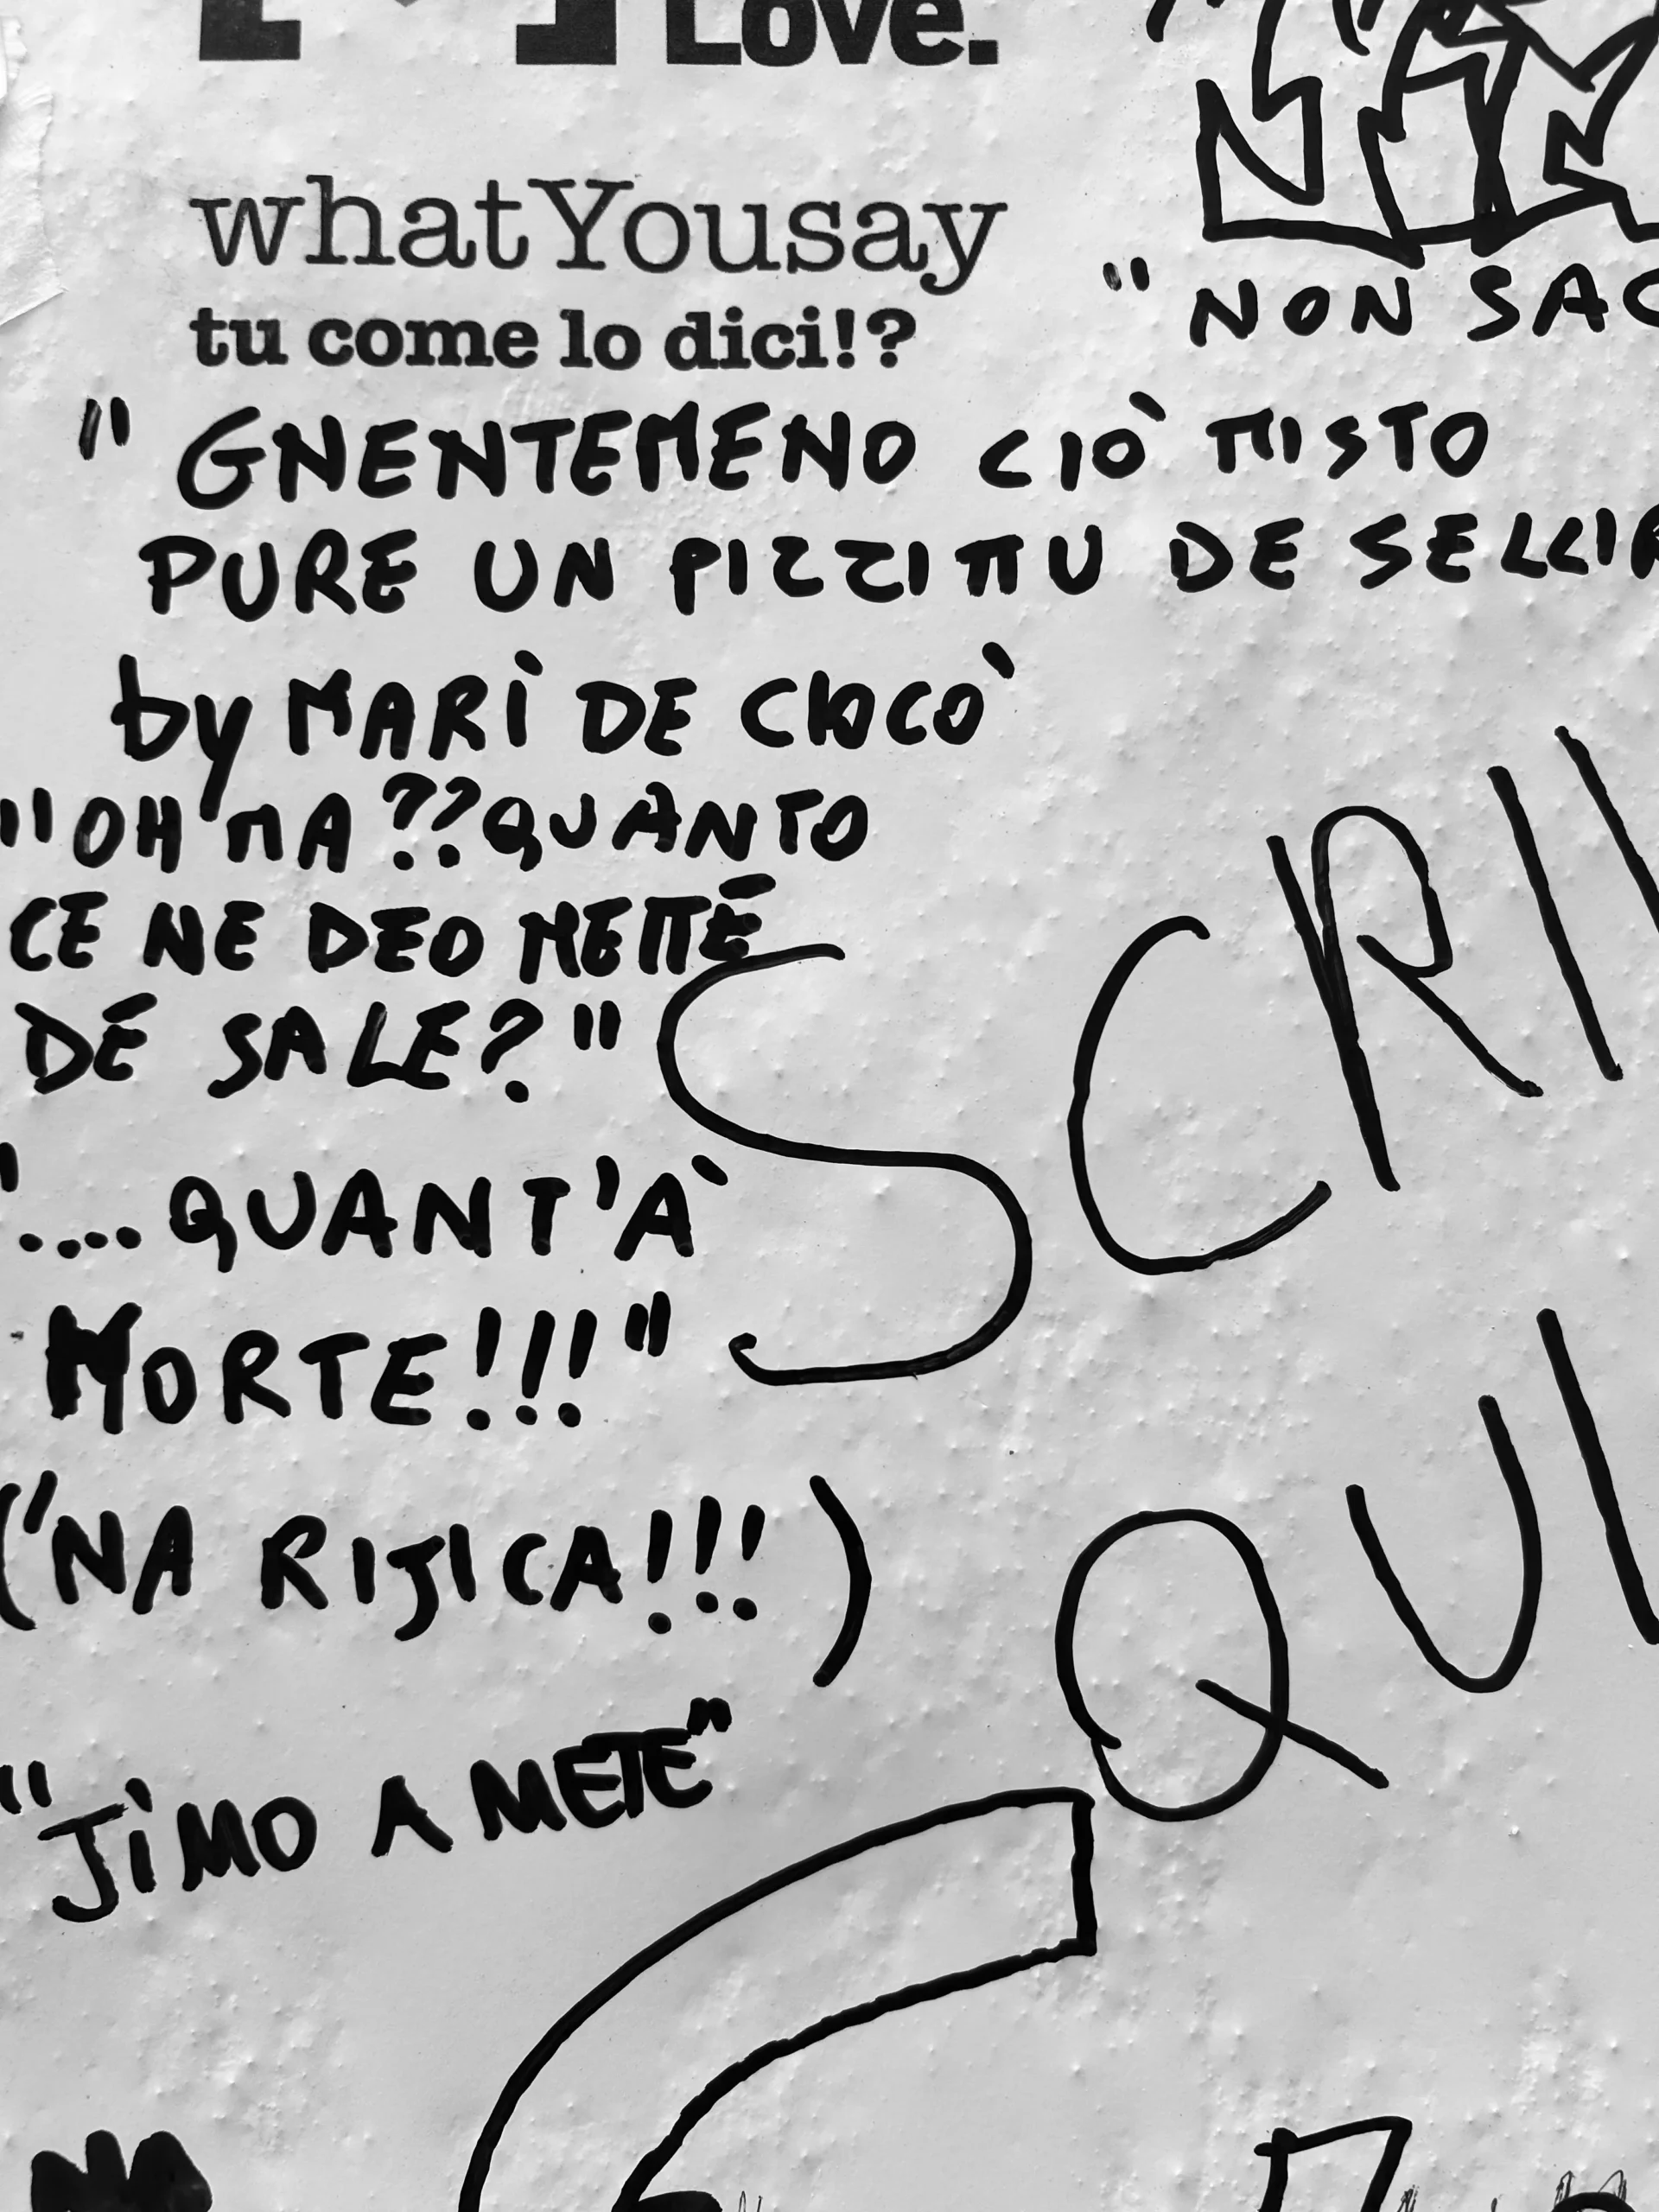 Love.
whatYousay
tu come lo dici!?
" NON SAC
" GNENTEMENO CIÒ MISTO
PURE UN PIZZITTU DE SELLIR
by MARÌ DE CIOCÒ
"OH 'MA ?? QUANTO
CE NE DEO METTÉ
DÉ SALE? "
".... QUANT'À
MORTE!!! "
('NA RIJICA!!! )
"JÌMO A METE"
SCRI
QUI